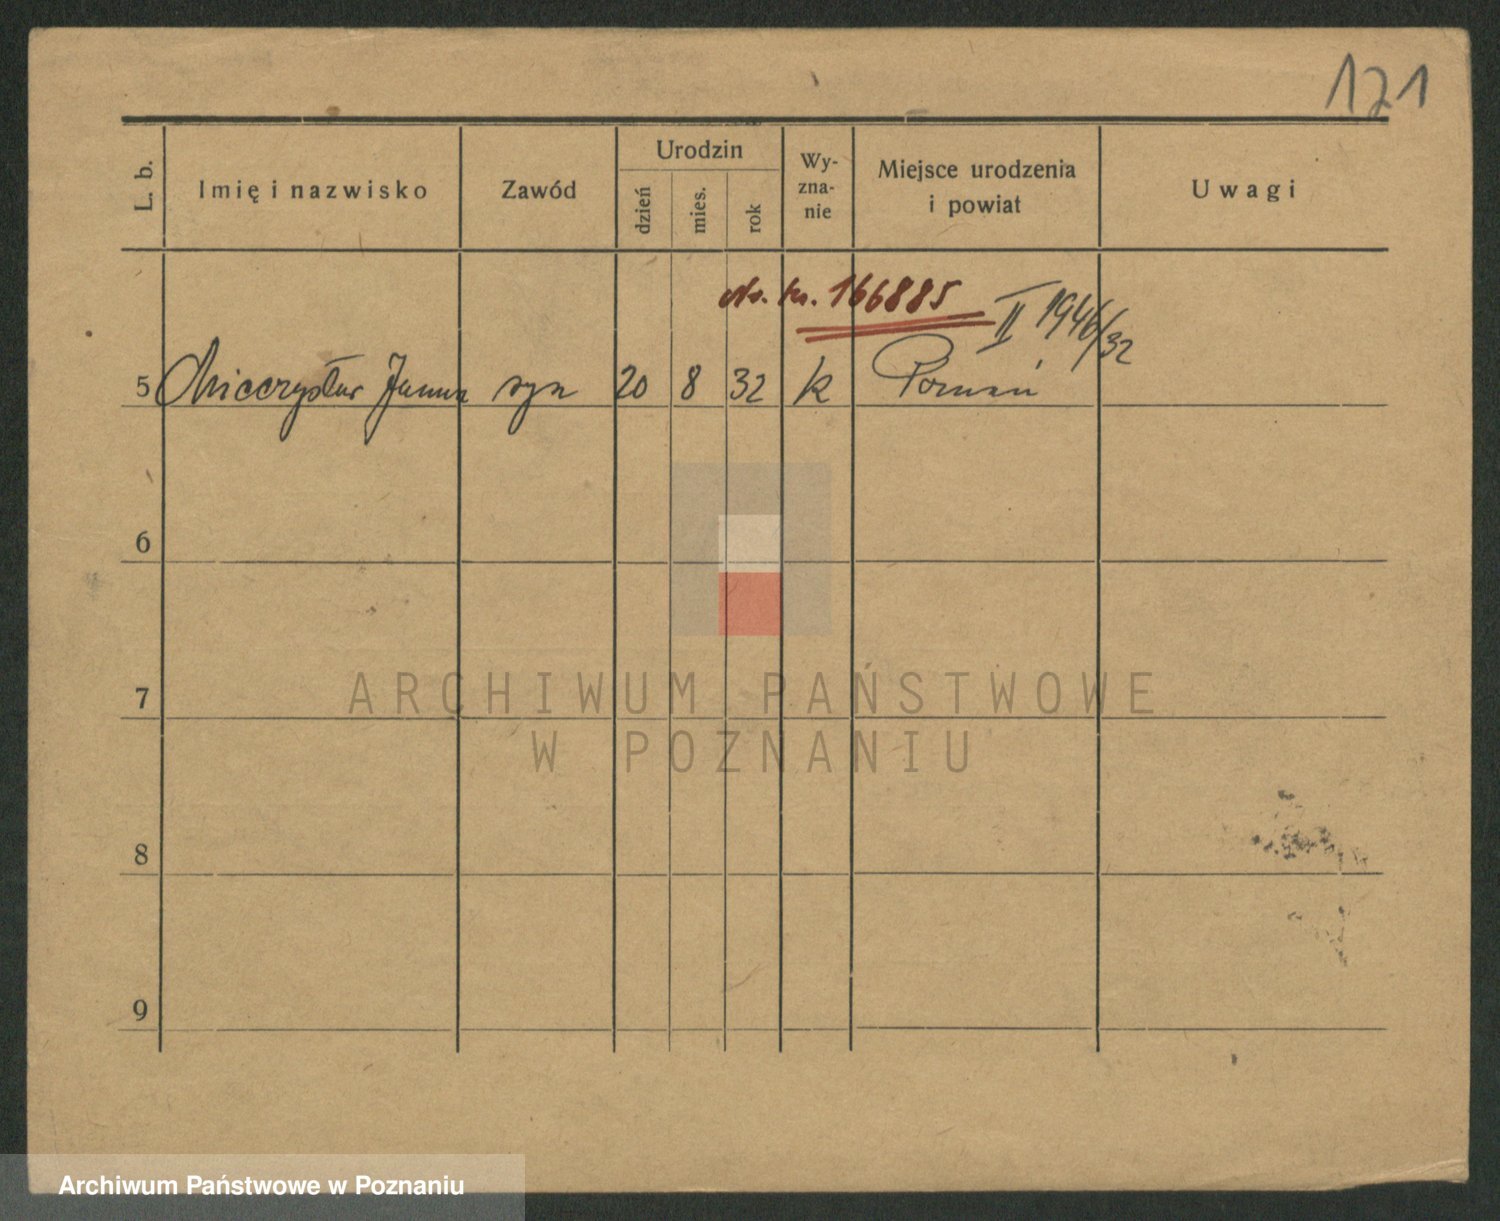 121
L. b. Imię i nazwisko Zawód Urodzin dzień mies. rok Wy-zna-nie Miejsce urodzenia i powiat Uwagi
166885
II 1946/32
5 Mieczysław syn 20 8 32 k Poznań
6
7
ARCHIWUM PAŃSTWOWE
W POZNANIU
8
9
Archiwum Państwowe w Poznaniu